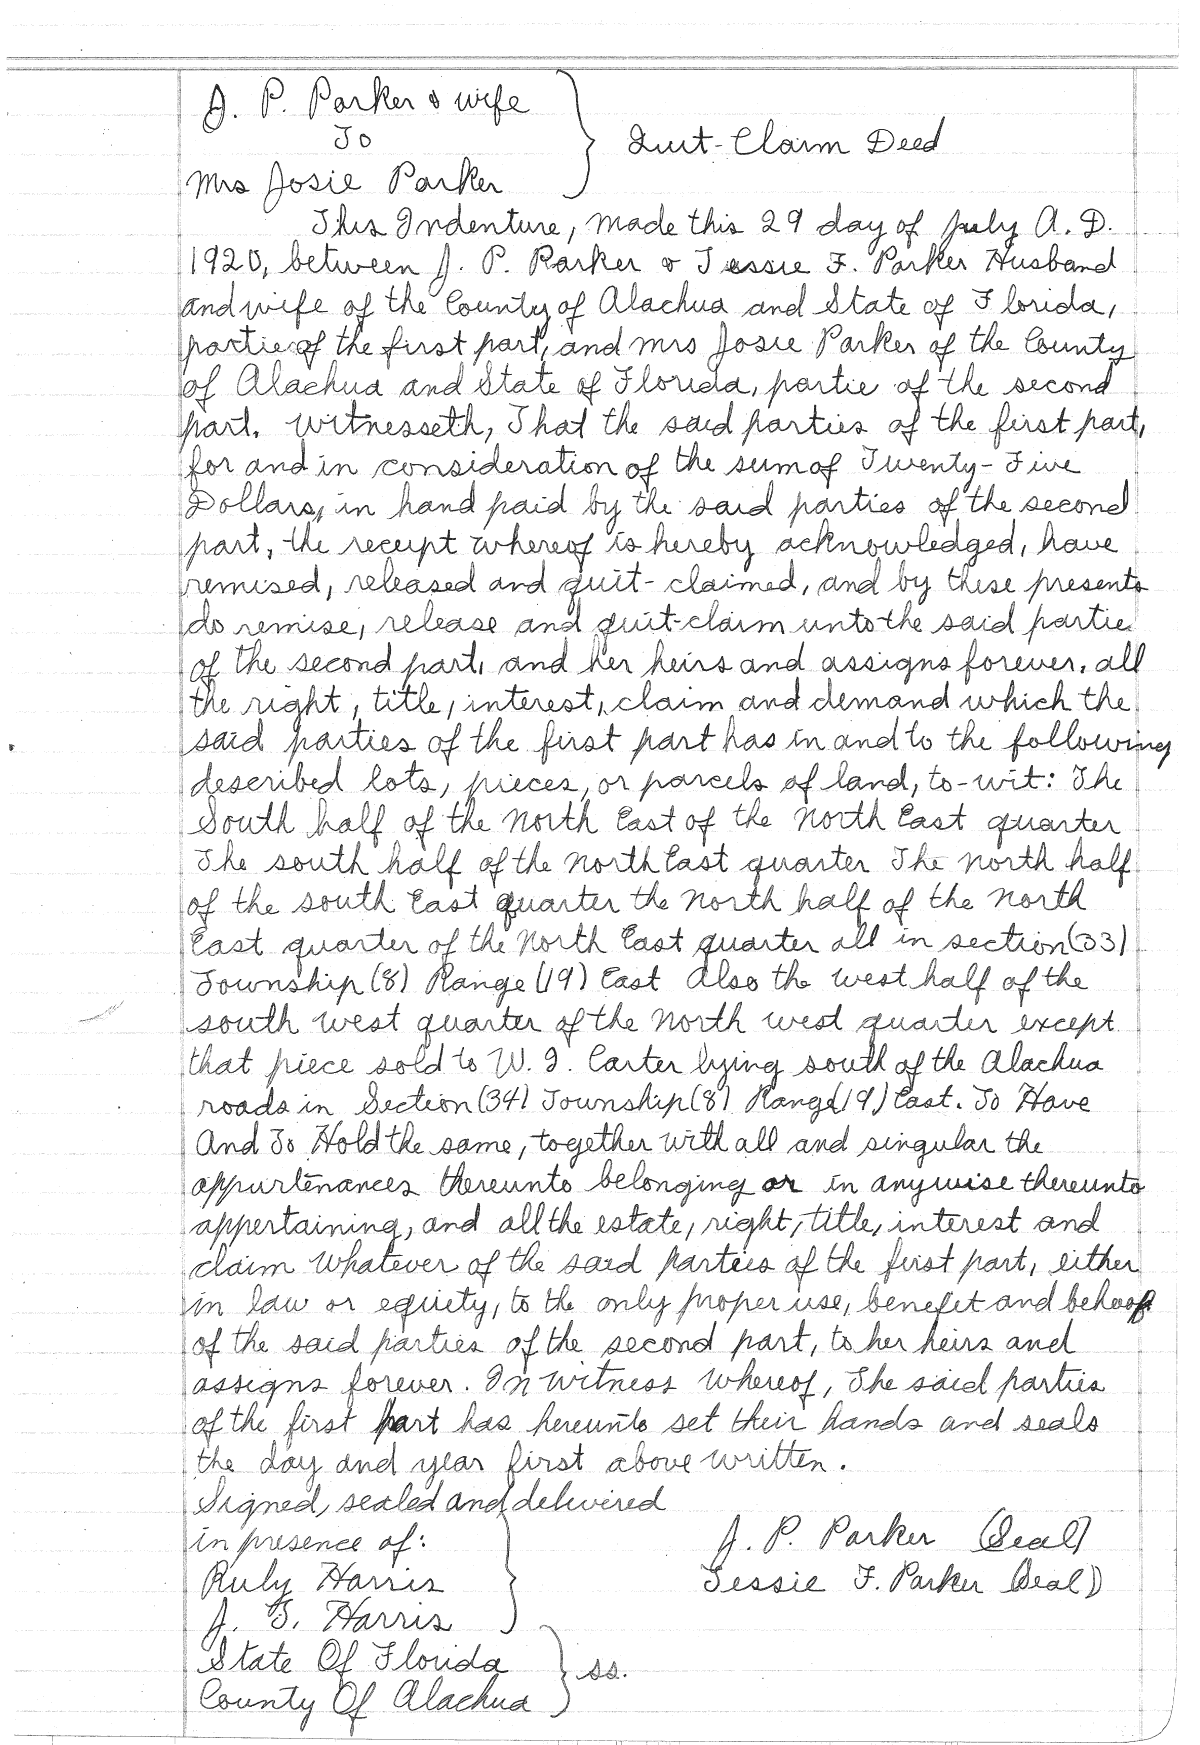 J. P. Parker & wife
To
Quit-Claim Deed
Mrs Josie Parker
This Indenture, made this 29 day of July A. D.
1920, between J. P. Parker & Tessie F. Parker Husband
and wife of the County of Alachua and State of Florida,
partie of the first part, and Mrs Josie Parker of the County
of Alachua and State of Florida, partie of the second
part. Witnesseth, That the said parties of the first part,
for and in consideration of the sum of Twenty-Five
Dollars, in hand paid by the said parties of the second
part, the receipt whereof is hereby acknowledged, have
remised, released and quit-claimed, and by these presents
do remise, release and quit-claim unto the said partie
of the second part, and her heirs and assigns forever, all
the right, title, interest, claim and demand which the
said parties of the first part has in and to the following
described lots, pieces, or parcels of land, to-wit: The
South half of the North East of the North East quarter
The south half of the North East quarter The North half
of the south East quarter the North half of the North
East quarter of the North East quarter all in section (33)
Township (8) Range (19) East Also the west half of the
south west quarter of the North west quarter except
that piece sold to W. I. Carter lying south of the Alachua
roads in Section (34) Township (8) Range (19) East. To Have
And To Hold the same, together with all and singular the
appurtenances thereunto belonging or in anywise thereunto
appertaining, and all the estate, right, title, interest and
claim whatever of the said parties of the first part, either
in law or equiety, to the only proper use, benefit and behoof
of the said parties of the second part, to her heirs and
assigns forever. In Witness Whereof, The said parties
of the first part has hereunto set their hands and seals
the day and year first above written.
Signed, sealed and delivered
in presence of:
J. P. Parker (Seal)
Ruly Harris
Tessie F. Parker (Seal)
J. G. Harris
State Of Florida
ss.
County Of Alachua